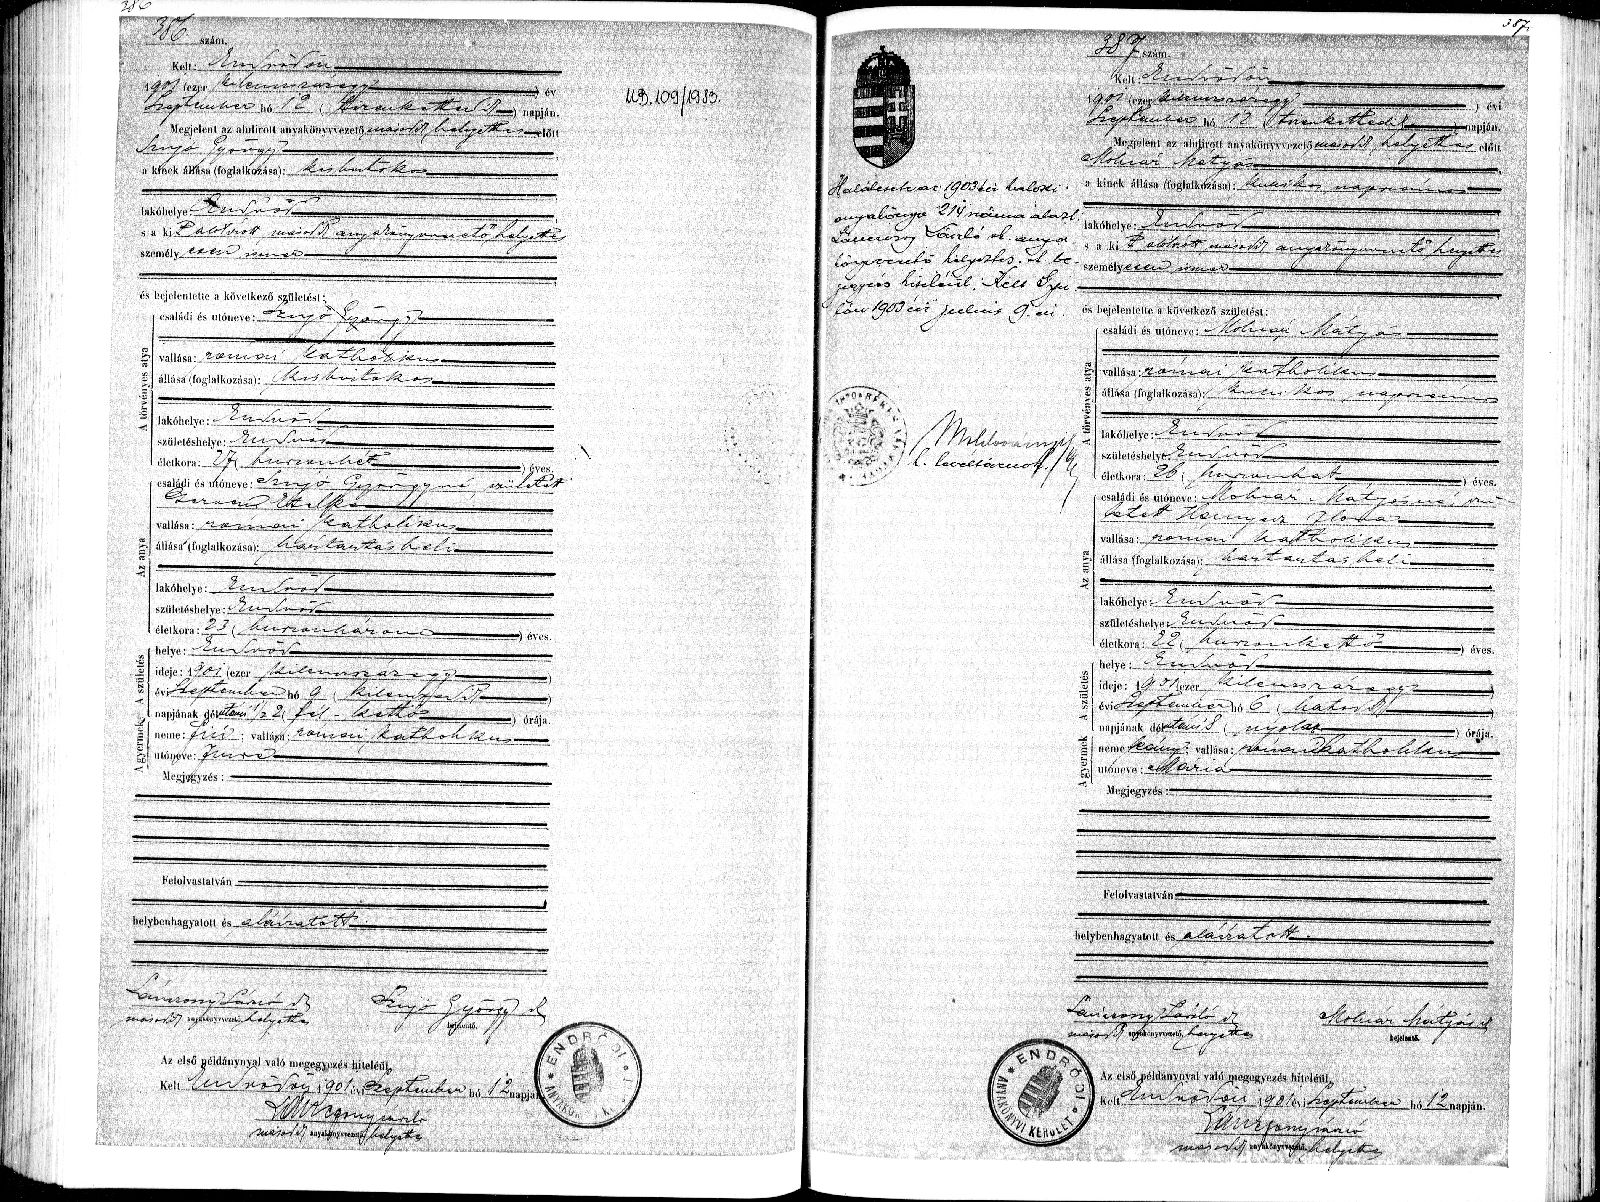 386
386 szám.
Kelt: Endrődön
1901 (ezer kilenczszázegy) év
Szeptember hó 12 (tizenkettedik) napján.
Megjelent az alulirott anyakönyvvezető másod helyettes előtt
Szujó György
a kinek állása (foglalkozása): kisbirtokos
lakóhelye: Endrőd
s a kit alulirott másod anyakönyvvezető helyettes
személyesen ismer
és bejelentette a következő születést:
A törvényes atya
családi és utóneve: Szujó György
vallása: római katholikus
állása (foglalkozása): kisbirtokos
lakóhelye: Endrőd
születéshelye: Endrőd
életkora: 27 (huszonhét) éves.
Az anya
családi és utóneve: Szujó Györgyné, született
Etelka
vallása: római katholikus
állása (foglalkozása): háztartásbeli
lakóhelye: Endrőd
születéshelye: Endrőd
életkora: 23 (huszonhárom) éves.
A születés
helye: Endrőd
ideje: 1901 (ezer kilenczszázegy)
évi Szeptember hó 9 (kilenczedik)
napjának délutáni 1/2 2 (fél-kettő) órája.
A gyermek
neme: fiú; vallása: római katholikus
utóneve: Imre
Megjegyzés:
Felolvastatván
helybenhagyatott és aláiratott.
Lánczony László sk
másod anyakönyvvezető helyettes
Szujó György sk
bejelentő.
Az első példánynyal való megegyezés hiteléül,
Kelt Endrődön 1901 évi Szeptember hó 12 napján
Lánczony László
másod anyakönyvvezető helyettes
ENDRŐDI
UB. 109/1983.
387.
387 szám.
Kelt: Endrődön
1901 (ezer kilenczszázegy) évi
Szeptember hó 12 (tizenkettedik) napján.
Megjelent az alulirott anyakönyvvezető másod helyettes előtt
Molnár Mátyás
a kinek állása (foglalkozása): kubikos napszámos
lakóhelye: Endrőd
s a kit alulirott másod anyakönyvvezető helyettes
személyesen ismer
és bejelentette a következő születést:
A törvényes atya
családi és utóneve: Molnár Mátyás
vallása: római katholikus
állása (foglalkozása): kubikos napszámos
lakóhelye: Endrőd
születéshelye: Endrőd
életkora: 26 (huszonhat) éves.
Az anya
családi és utóneve: Molnár Mátyásné, szü-
letett Ilona
vallása: római katholikus
állása (foglalkozása): háztartásbeli
lakóhelye: Endrőd
születéshelye: Endrőd
életkora: 22 (huszonkettő) éves.
A születés
helye: Endrőd
ideje: 1901 (ezer kilenczszázegy)
évi Szeptember hó 6 (hatodik)
napjának délutáni 8 (nyolcz) órája.
A gyermek
neme: leány; vallása: római katholikus
utóneve: Mária
Megjegyzés:
Felolvastatván
helybenhagyatott és aláiratott.
Lánczony László sk
másod anyakönyvvezető helyettes
Molnár Mátyás sk
bejelentő.
Az első példánynyal való megegyezés hiteléül,
Kelt Endrődön 1901 évi Szeptember hó 12 napján.
Lánczony László
másod anyakönyvvezető helyettes
ENDRŐDI
ANYAKÖNYVI KERÜLET
1903 évi halotti
anyakönyve 214 száma alatt
Lánczony László sk. anya-
könyvvezető helyettes sk be-
jegyzés hiteléül. Kelt Gyu-
lán 1903 évi julius 9.-én
levéltárnok